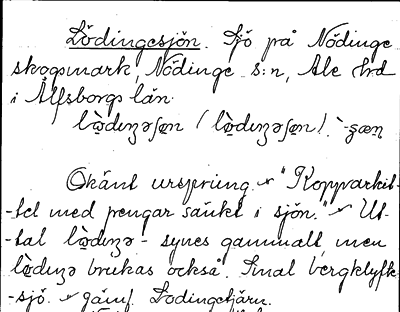 Lödingesjön. Sjö på Nödinge
skogsmark, Nödinge s:n, Ale hrd
i Älfsborgs län.
Okänt ursprung. "Kopparkit-
-tel med pengar sänkt i sjön." Ut-
-tal synes gammalt, men
brukas också. Smal bergklyft-
-sjö. jämf. Lödingetjärn.